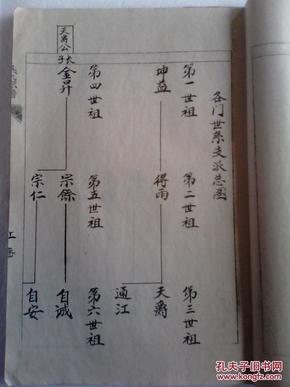 各门世系支派总图
第一世祖 第二世祖 第三世祖
坤益 得雨 天爵
通江
第四世祖 第五世祖 第六世祖
宗儒 自诚
天爵公 长子 金升 宗仁 自安